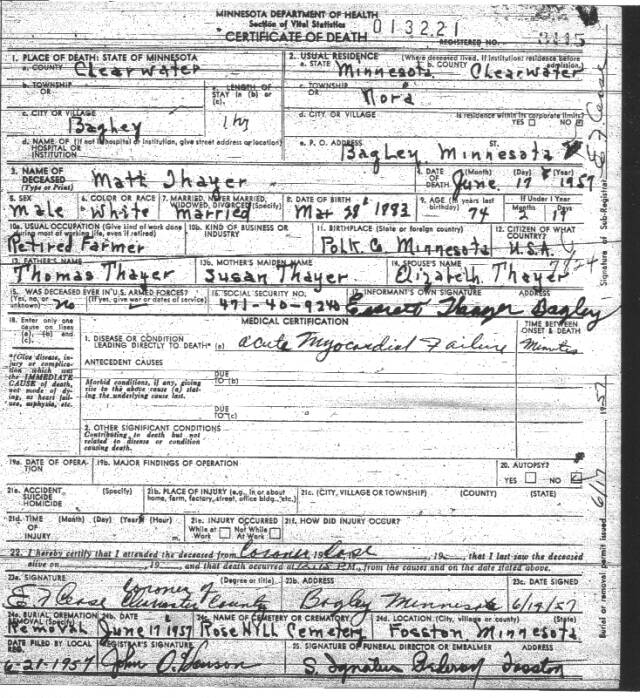 MINNESOTA DEPARTMENT OF HEALTH
Section of Vital Statistics
CERTIFICATE OF DEATH
013221
REGISTERED NO.
1. PLACE OF DEATH: STATE OF MINNESOTA
a. COUNTY Clearwater
2. USUAL RESIDENCE (Where deceased lived. If institution: residence before admission)
a. STATE Minnesota b. COUNTY Clearwater
b. TOWNSHIP OR
LENGTH OF STAY IN (b) or (c).
c. TOWNSHIP OR Nora
c. CITY OR VILLAGE Bagley
d. CITY OR VILLAGE
Is residence within corporate limits?
YES NO
d. NAME OF (If not in hospital or institution, give street address or location)
HOSPITAL OR INSTITUTION
e. P. O. ADDRESS ST.
Bagley Minnesota
3. NAME OF DECEASED (Type or Print) Matt Thayer
4. DATE OF DEATH (Month) (Day) (Year) June 17 1957
5. SEX Male
6. COLOR OR RACE White
7. MARRIED, NEVER MARRIED, WIDOWED, DIVORCED (Specify) Married
8. DATE OF BIRTH Mar 28 1883
9. AGE (In years last birthday) 74
If Under 1 Year
Months Days
2
10a. USUAL OCCUPATION (Give kind of work done during most of working life, even if retired) Retired Farmer
10b. KIND OF BUSINESS OR INDUSTRY
11. BIRTHPLACE (State or foreign country) Polk Co Minnesota
12. CITIZEN OF WHAT COUNTRY? U.S.A.
13. FATHER'S NAME Thomas Thayer
13b. MOTHER'S MAIDEN NAME Susan Thayer
14. SPOUSE'S NAME Elizabeth Thayer
15. WAS DECEASED EVER IN U.S. ARMED FORCES?
(Yes, no, or unknown) (If yes, give war or dates of service)
No
16. SOCIAL SECURITY NO. 471-40-9240
17. INFORMANT'S OWN SIGNATURE ADDRESS
Everett Thayer Bagley
18. Enter only one cause on lines (a), (b) and (c).
MEDICAL CERTIFICATION
TIME BETWEEN ONSET & DEATH
1. DISEASE OR CONDITION LEADING DIRECTLY TO DEATH* (a) acute Myocardial Failure Minutes
*(Give disease, injury or complication which was the IMMEDIATE CAUSE of death, not mode of dying, as heart failure, asphyxia, etc.
ANTECEDENT CAUSES
Morbid conditions, if any, giving rise to the above cause (a) stating the underlying cause last.
DUE TO (b)
DUE TO (c)
2. OTHER SIGNIFICANT CONDITIONS
Contributing to death but not related to disease or condition causing death.
19a. DATE OF OPERATION
19b. MAJOR FINDINGS OF OPERATION
20. AUTOPSY?
YES NO
21a. ACCIDENT SUICIDE HOMICIDE (Specify)
21b. PLACE OF INJURY (e.g., in or about home, farm, factory, street, office bldg., etc.)
21c. (CITY, VILLAGE OR TOWNSHIP) (COUNTY) (STATE)
21d. TIME OF INJURY (Month) (Day) (Year) (Hour)
21e. INJURY OCCURRED
While at Work Not While At Work
21f. HOW DID INJURY OCCUR?
22. I hereby certify that I attended the deceased from Coroner 19 Case, 19 , that I last saw the deceased
alive on , 19 and that death occurred at P.M., from the causes and on the date stated above.
23a. SIGNATURE (Degree or title)
E J Case Coroner of Clearwater County
23b. ADDRESS Bagley Minnesota
23c. DATE SIGNED 6/19/57
24a. BURIAL, CREMATION REMOVAL (Specify) Removal
24b. DATE June 17 1957
24c. NAME OF CEMETERY OR CREMATORY Rose Hill Cemetery
24d. LOCATION (City, village or county) (State)
Fosston Minnesota
DATE FILED BY LOCAL 6-21-1957
REGISTRAR'S SIGNATURE John O. Hanson
25. SIGNATURE OF FUNERAL DIRECTOR OR EMBALMER ADDRESS
Fosston
Signature of Sub-Registrar E J Case
Burial or removal permit issued 6/17 1957